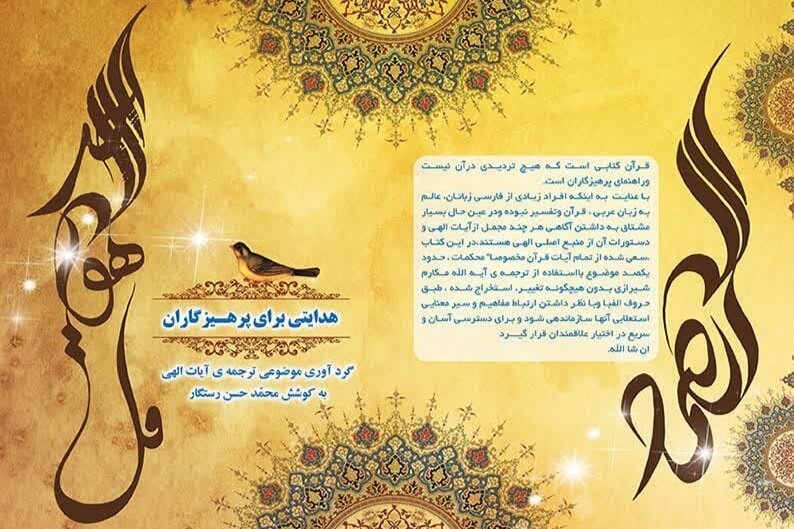 هدایتی برای پرهیزگاران
گرد آوری موضوعی ترجمه ی آیات الهی
به کوشش محمّد حسن رستگار
قرآن کتابی است که هیچ تردیدی درآن نیست
وراهنمای پرهیزگاران است.
با عنایت به اینکه افراد زیادی از فارسی زبانان، عالم
به زبان عربی ، قرآن وتفسیر نبوده ودر عین حال بسیار
مشتاق به داشتن آگاهی هر چند مجمل ازآیات الهی و
دستورات آن از منبع اصلی الهی هستند،در این کتاب
،سعی شده از تمام آیات قرآن مخصوصا" محکمات ، حدود
یکصد موضوع بااستفاده از ترجمه ی آیه الله مکارم
شیرازی بدون هیچگونه تغییر، استخراج شده ، طبق
حروف الفبا وبا نظر داشتن ارتباط مفاهیم و سیر معنایی
استعلایی آنها سازماندهی شود و برای دسترسی آسان و
سریع در اختیار علاقمندان قرار گیرد
ان شا الله.